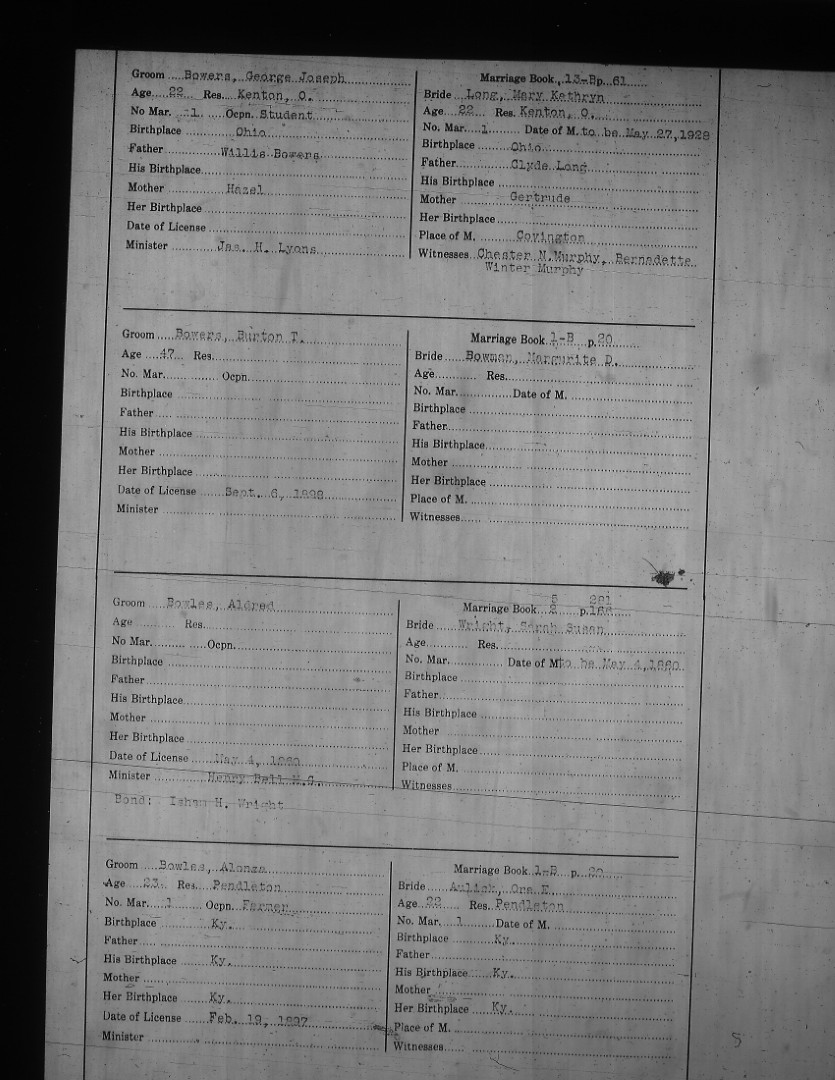 Groom Bowers, George Joseph
Age 22 Res. Kenton, O.
No Mar. 1 Ocpn. Student
Birthplace Ohio
Father Willis Bowers
His Birthplace
Mother Hazel
Her Birthplace
Date of License
Minister Jas. H. Lyons
Marriage Book 13-B p. 61
Bride Long, Mary Kathryn
Age 22 Res. Kenton, O.
No. Mar. 1 Date of M. to be May 27, 1928
Birthplace Ohio
Father Clyde Long
His Birthplace
Mother Gertrude
Her Birthplace
Place of M. Covington
Witnesses Chester N. Murphy, Bernadette
Winter Murphy
Groom Bowers, Burton T.
Age 47 Res.
No. Mar. Ocpn.
Birthplace
Father
His Birthplace
Mother
Her Birthplace
Date of License Sept. 6, 1898
Minister
Marriage Book 1-B p. 20
Bride Bowman, Margurite D.
Age Res.
No. Mar. Date of M.
Birthplace
Father
His Birthplace
Mother
Her Birthplace
Place of M.
Witnesses
Groom Bowles, Aldred
Age Res.
No Mar. Ocpn.
Birthplace
Father
His Birthplace
Mother
Her Birthplace
Date of License May 4,
Minister Henry Bell M.G.
Bond: Isham H. Wright
5
Marriage Book 2 p.
Bride Wright, Sarah Susan
Age Res.
No. Mar. Date of M to be May 4,
Birthplace
Father
His Birthplace
Mother
Her Birthplace
Place of M.
Witnesses
Groom Bowles, Alonza
Age 23 Res. Pendleton
No. Mar. 1 Ocpn. Farmer
Birthplace Ky.
Father
His Birthplace Ky.
Mother
Her Birthplace Ky.
Date of License Feb. 19, 1897
Minister
Marriage Book 1-B p. 20
Bride Aulick, Ora E.
Age 22 Res. Pendleton
No. Mar. 1 Date of M.
Birthplace Ky.
Father
His Birthplace Ky.
Mother
Her Birthplace Ky.
Place of M.
Witnesses